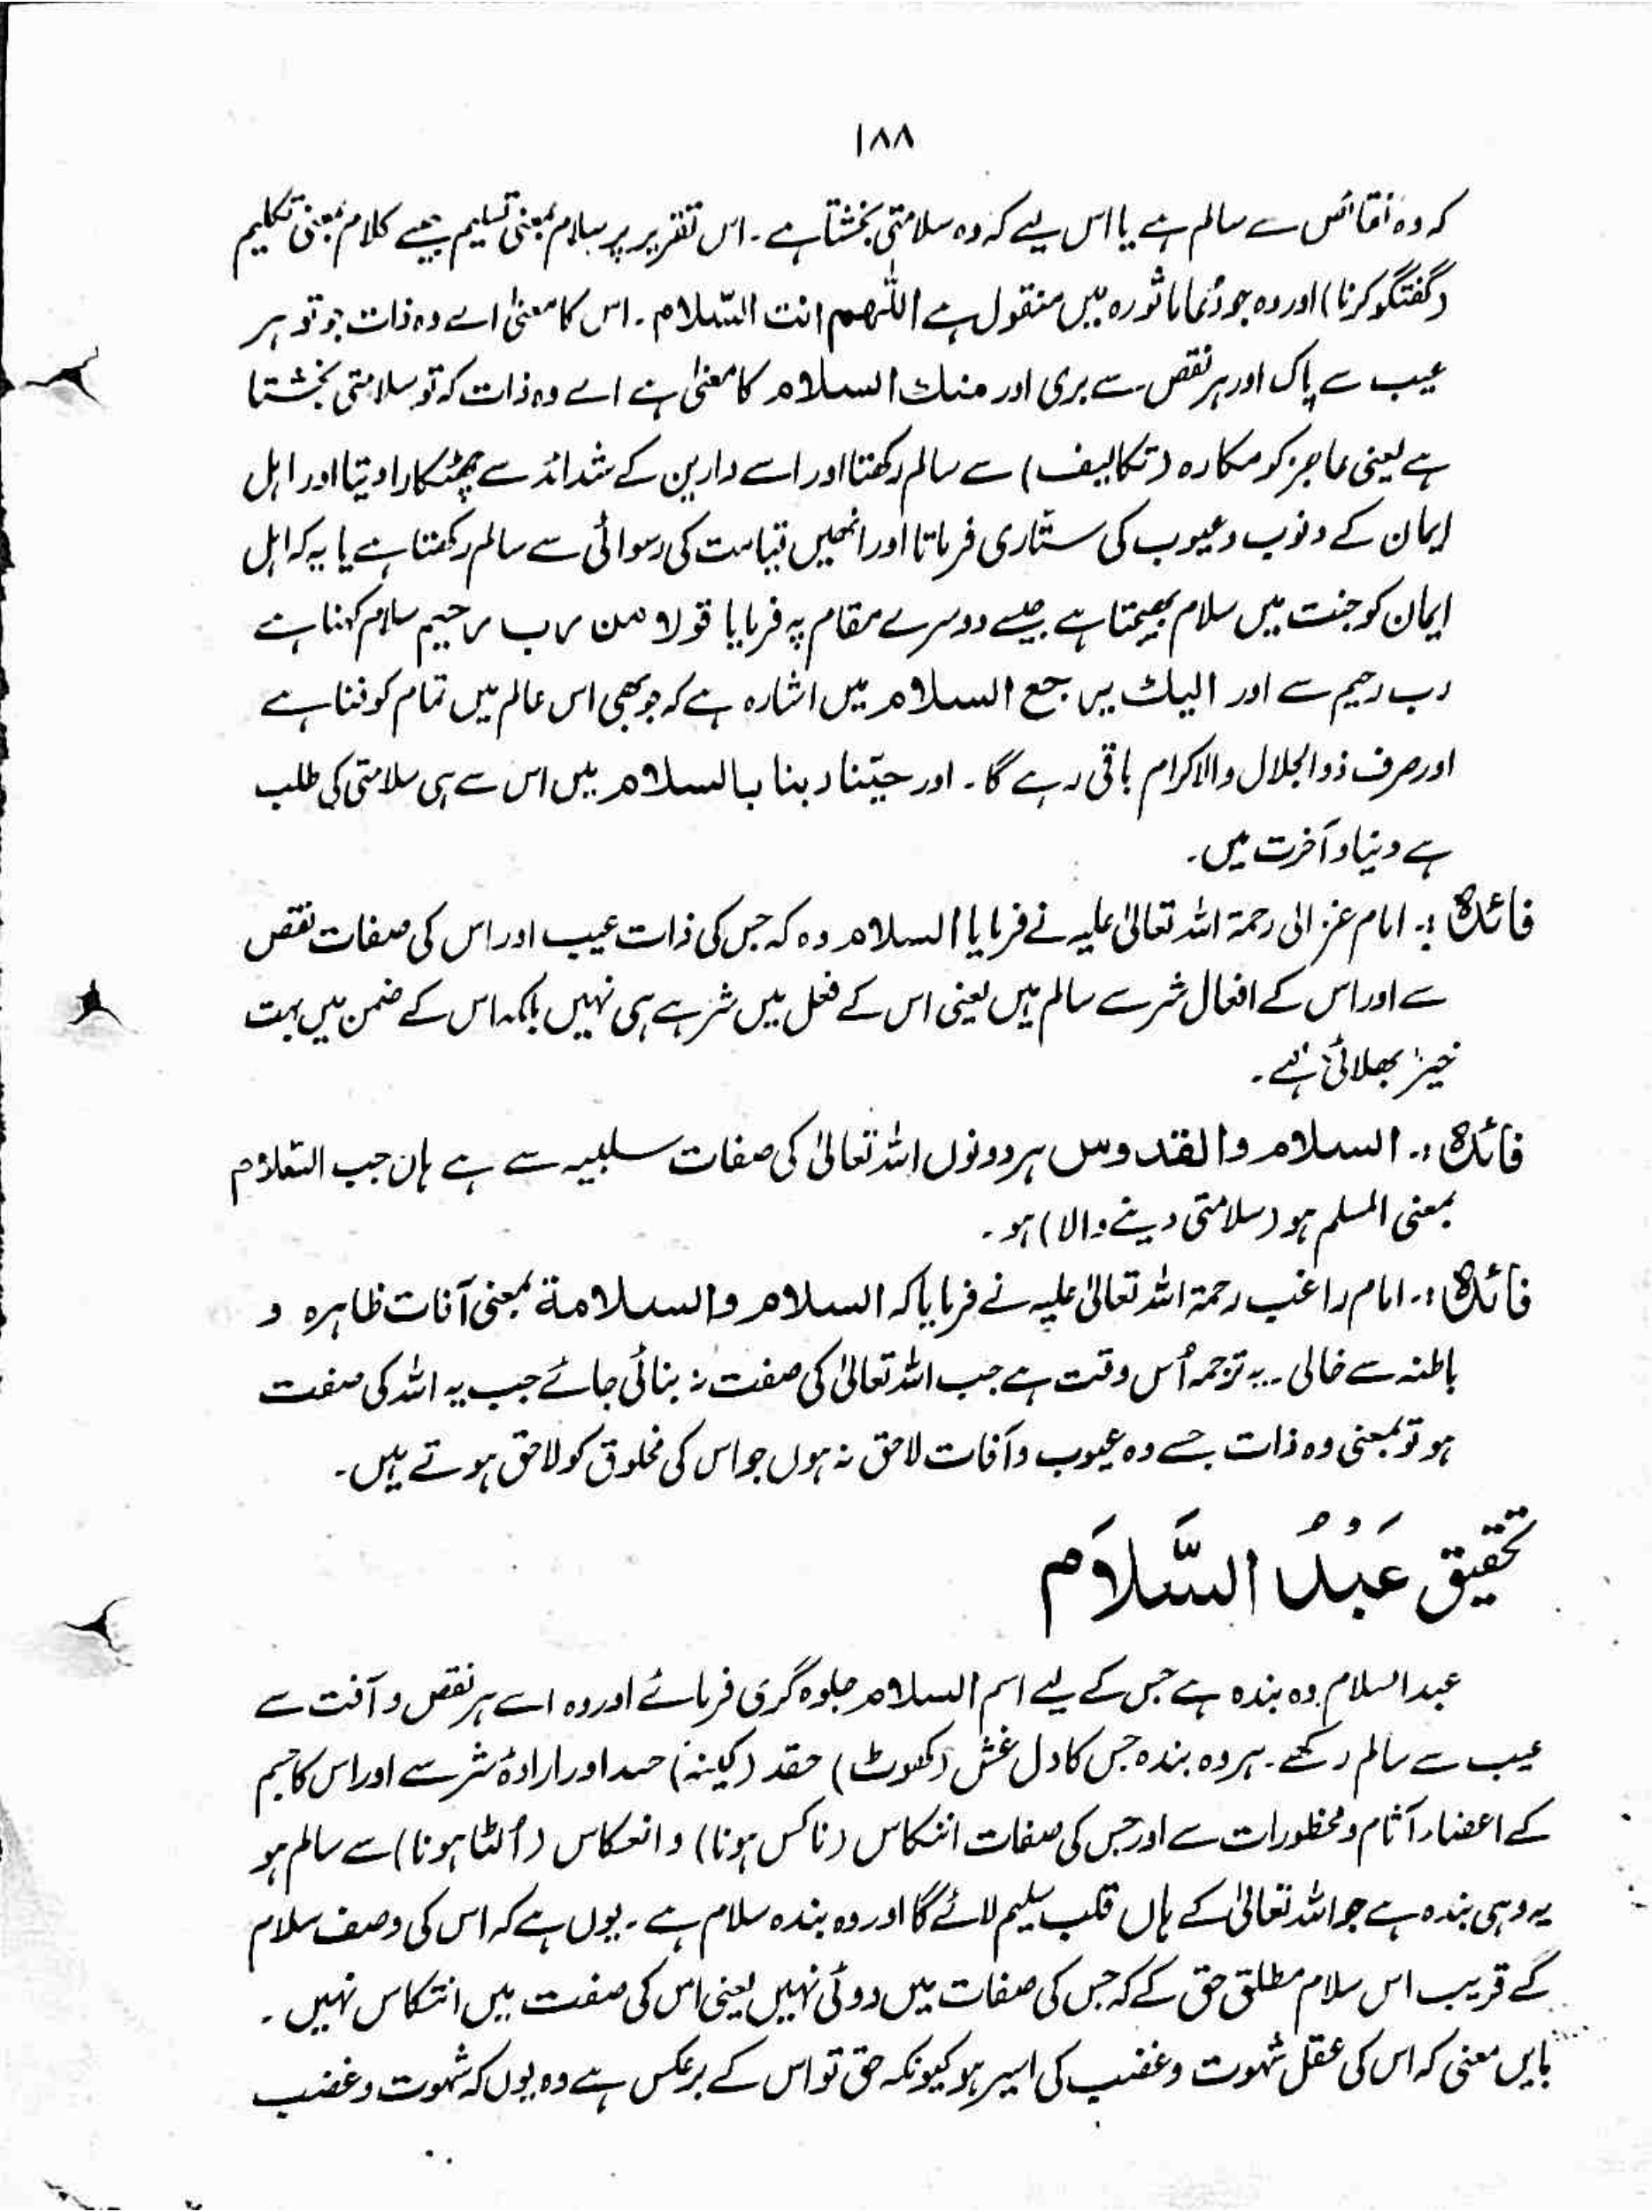 ۱۸۸
کہ وہ نقائص سے سالم ہے یا اس لیے کہ وہ سلامتی بخشتا ہے ۔ اس تقریر پر سلام بمعنی تسلیم جیسے کلام بمعنی تکلیم
(گفتگو کرنا) اور وہ جو دُعا ماثورہ میں منقول ہے اللّٰھم انت السّلام ۔ اس کا معنیٰ اے وہ ذات جو تو ہر
عیب سے پاک اور ہر نقص سے بری اور منك السلام کا معنیٰ ہے اے وہ ذات کہ تو سلامتی بخشتا
ہے یعنی عاجز کو مکارہ (تکالیف) سے سالم رکھتا اور اسے دارین کے شدائد سے چھٹکارا دیتا اور اہل
ایمان کے ذنوب و عیوب کی ستّاری فرماتا اور انھیں قیامت کی رسوائی سے سالم رکھتا ہے یا یہ کہ اہل
ایمان کو جنت میں سلام بھیجتا ہے جیسے دوسرے مقام پہ فرمایا قولا من رب رحیم سلام کہنا ہے
رب رحیم سے اور الیك یرجع السلام میں اشارہ ہے کہ جو بھی اس عالم میں تمام کو فنا ہے
اور صرف ذوالجلال والاکرام باقی رہے گا ۔ اور حیّنا ربنا بالسلام میں اس سے ہی سلامتی کی طلب
ہے دنیا و آخرت میں۔
فائدہ :۔ امام غزالی رحمۃ اللہ تعالیٰ علیہ نے فرمایا السلام وہ کہ جس کی ذات عیب اور اس کی صفات نقص
سے اور اس کے افعال شر سے سالم ہیں یعنی اس کے فعل میں شر ہے ہی نہیں بلکہ اس کے ضمن میں بہت
خیر بھلائی ہے ۔
فائدہ :۔ السلام والقدوس ہر دونوں اللہ تعالیٰ کی صفات سلبیہ سے ہے ہاں جب السّلام
بمعنی المسلم ہو (سلامتی دینے والا) ہو ۔
فائدہ :۔ امام راغب رحمۃ اللہ تعالیٰ علیہ نے فرمایا کہ السلام والسلامة بمعنی آفات ظاہرہ و
باطنہ سے خالی ۔ یہ ترجمہ اُس وقت ہے جب اللہ تعالیٰ کی صفت نہ بنائی جائے جب یہ اللہ کی صفت
ہو تو بمعنی وہ ذات جسے وہ عیوب و آفات لاحق نہ ہوں جو اس کی مخلوق کو لاحق ہوتے ہیں ۔
تحقیق عَبْدُ السَّلَام
عبدالسلام وہ بندہ ہے جس کے لیے اسم السلام جلوہ گری فرمائے اور وہ اسے ہر نقص و آفت سے
عیب سے سالم رکھے ۔ ہر وہ بندہ جس کا دل غش (کھوٹ) حقد (کینہ) حسد اور ارادۂ شر سے اور اس کا جسم
کے اعضاء آثام و محظورات سے اور جس کی صفات انتکاس (ناکس ہونا) و انعکاس (اُلٹا ہونا) سے سالم ہو
یہ وہی بندہ ہے جو اللہ تعالیٰ کے ہاں قلب سلیم لائے گا اور وہ بندہ سلام ہے ۔ یوں ہے کہ اس کی وصف سلام
کے قریب اس سلام مطلق حق کے کہ جس کی صفات میں دوئی نہیں یعنی اس کی صفت میں انتکاس نہیں ۔
بایں معنی کہ اس کی عقل شہوت و غضب کی اسیر ہو کیونکہ حق تو اس کے برعکس ہے وہ یوں کہ شہوت و غضب